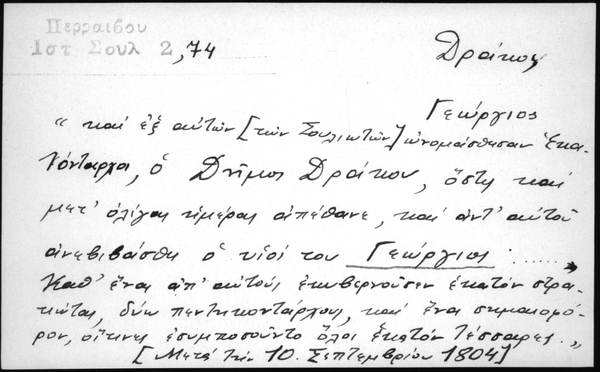 Περραιβου
Ιστ Σουλ 2,74
Δράκος
Γεώργιος
"καί ἐξ αὐτῶν [τῶν Σουλιωτῶν] ὠνομάσθησαν Ἑκα-
τόνταρχοι, ὁ Δῆμος Δράκου, ὅστις καί
μετ' ὀλίγας ἡμέρας ἀπέθανε, καί ἀντ' αὐτοῦ
ἀνεβιβάσθη ὁ υἱός του Γεώργιος ......→
Καθ' ἕνας ἀπ' αὐτούς ἐκυβερνοῦσεν ἑκατόν στρα-
τιώτας, δύω πεντηκοντάρχους, καί ἕνα σημαιοφό-
ρον, οἵτινες ἐσυμποσοῦντο ὅλοι ἑκατόν τέσσαρες."
[Μετά τήν 10. Σεπτεμβρίου 1804]